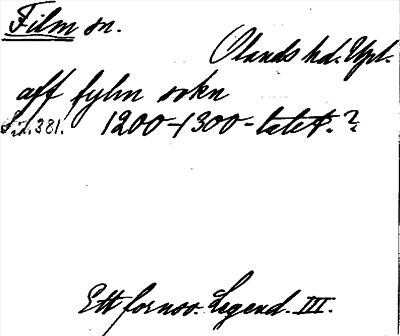 Film sn.
Olands hd. Upl.
aff fylm sokn
Sid. 381. 1200-1300-talet.?
Ett fornsv. Legend. III.